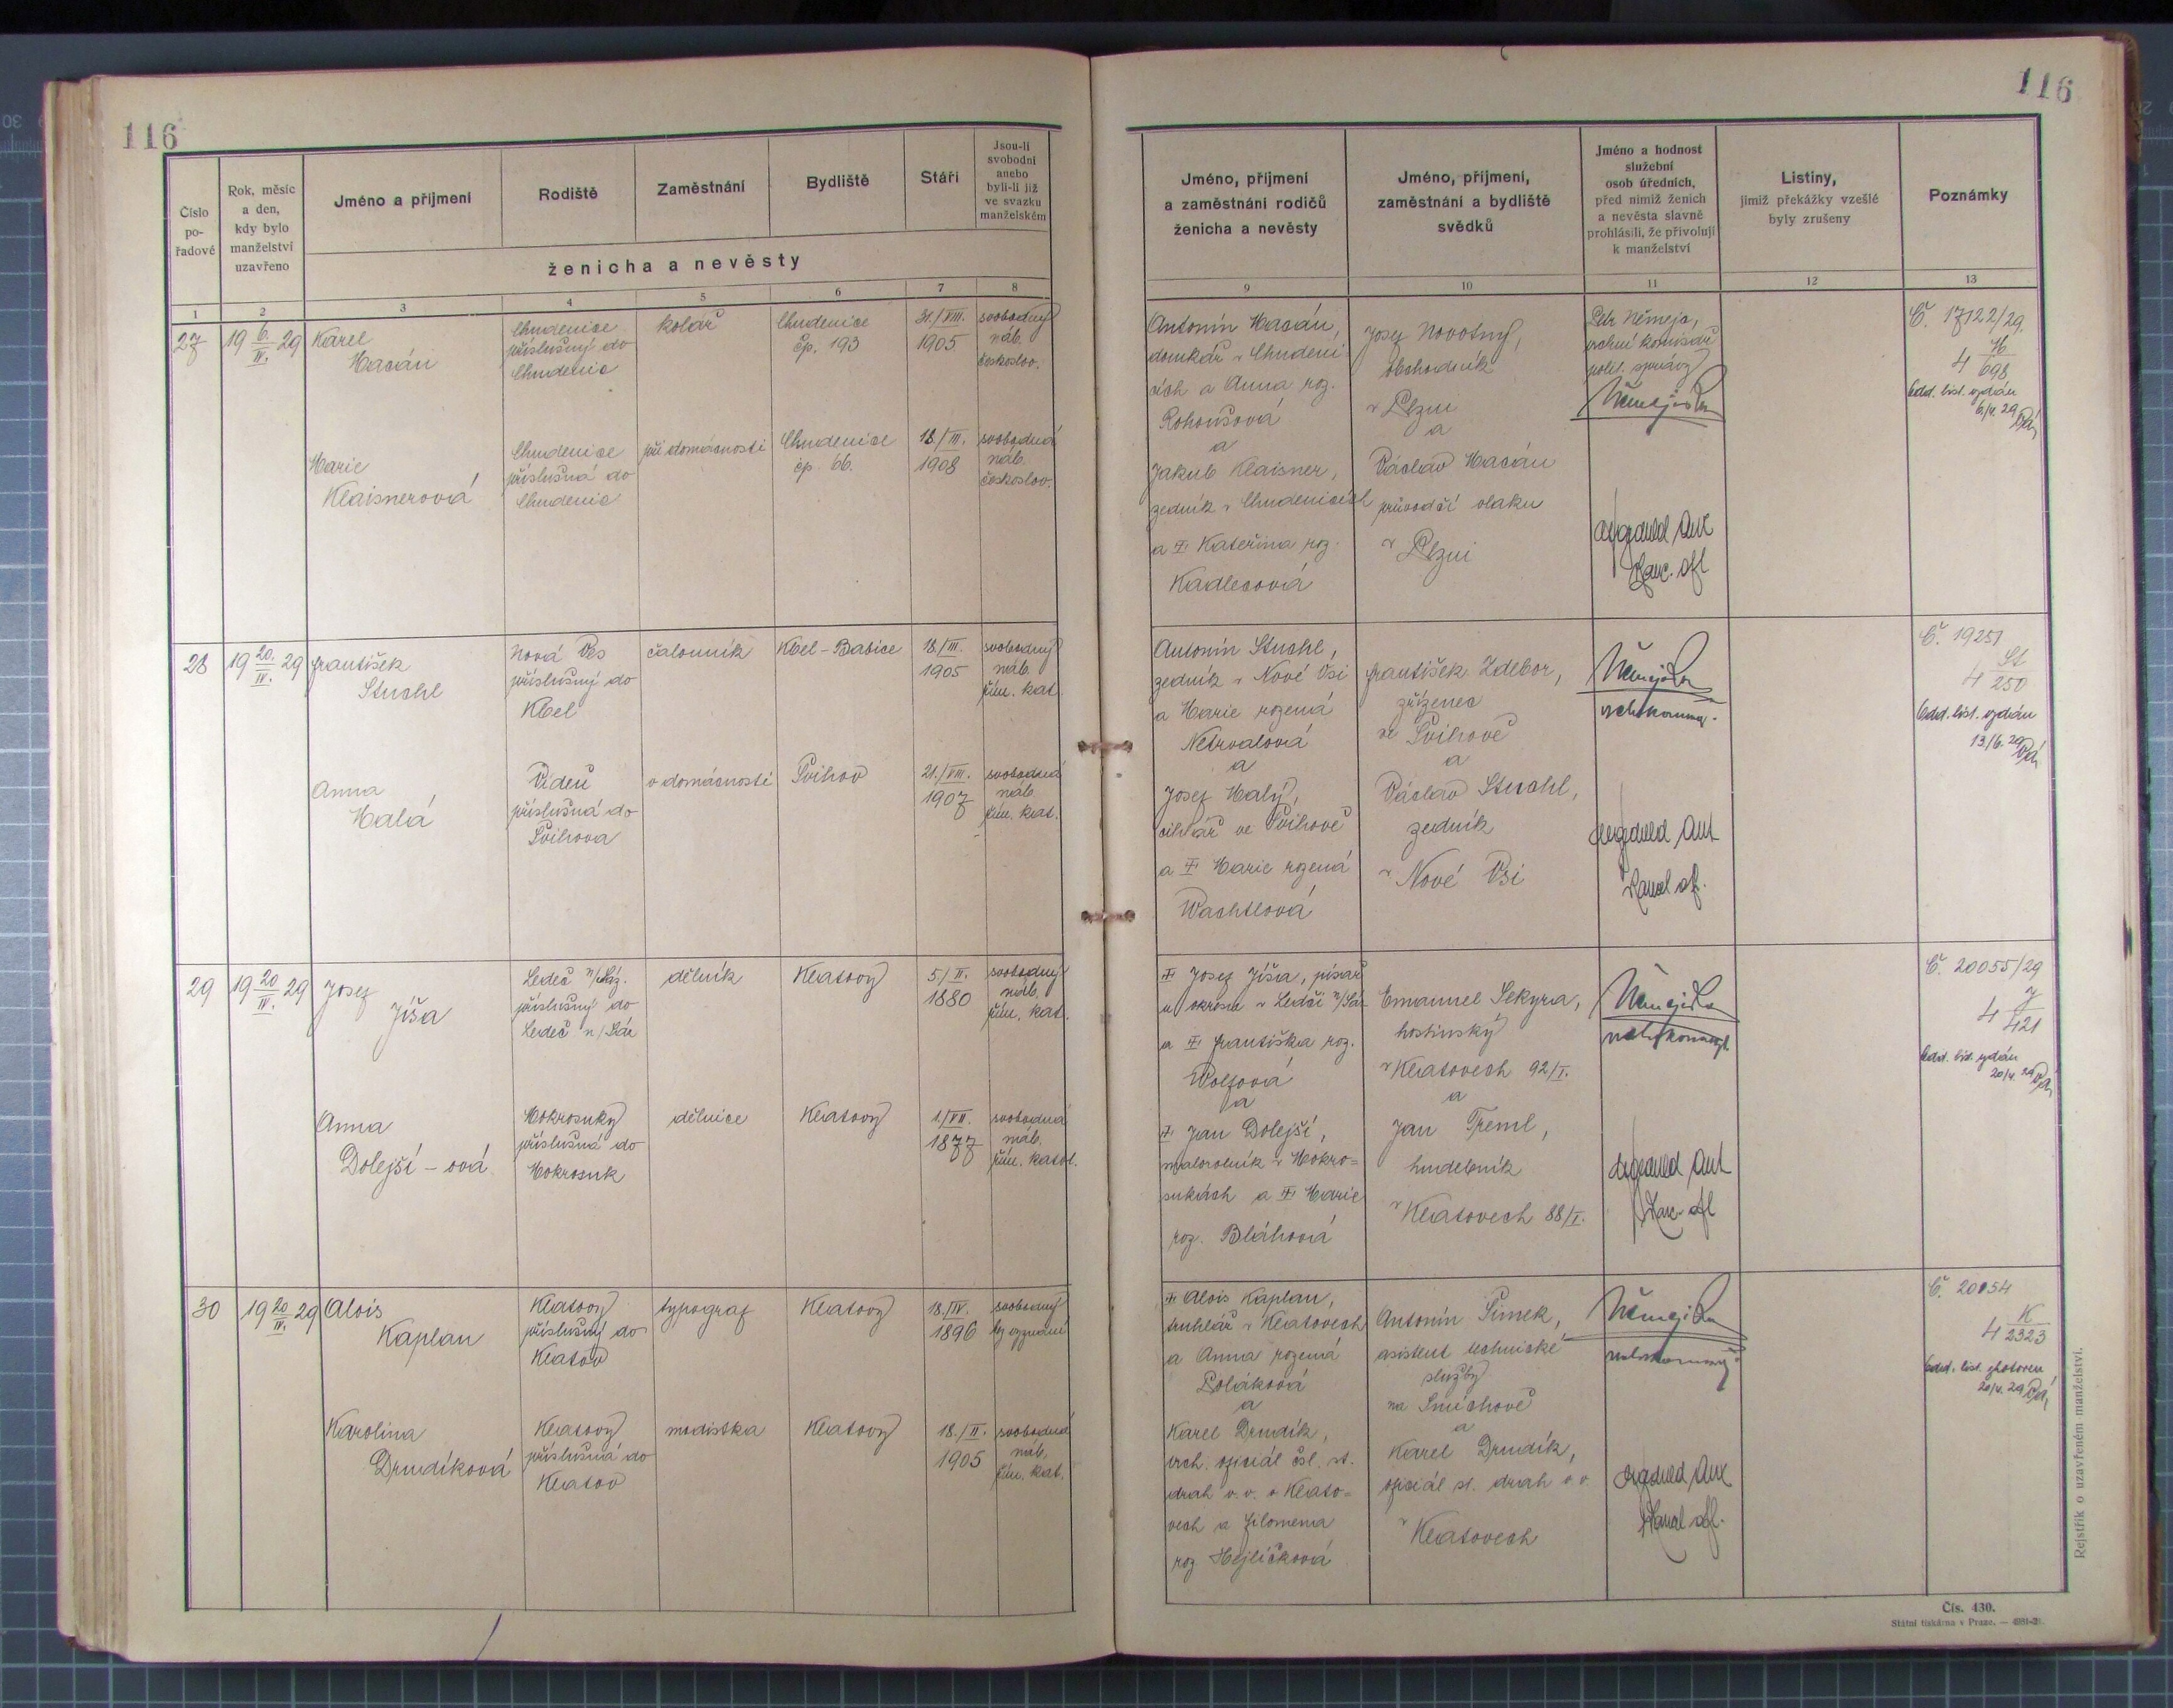 116
116
Číslo pořadové
Rok, měsíc a den, kdy bylo manželství uzavřeno
Jméno a příjmení
Rodiště
Zaměstnání
Bydliště
Stáří
Jsou-li svobodni anebo byli-li již ve svazku manželském
ženicha a nevěsty
Jméno, příjmení a zaměstnání rodičů ženicha a nevěsty
Jméno, příjmení, zaměstnání a bydliště svědků
Jméno a hodnost služební osob úředních, před nimiž ženich a nevěsta slavně prohlásili, že přivolují k manželství
Listiny, jimiž překážky vzešlé byly zrušeny
Poznámky
1 2 3 4 5 6 7 8 9 10 11 12 13
27
19 6./IV. 29
Karel
Macán
Chudenice
příslušný do
Chudenic
kolář
Chudenice
čp. 193
31./VIII.
1905
svobodný
náb.
českoslov.
Marie
Klaisnerová
Chudenice
příslušná do
Chudenic
při domácnosti
Chudenice
čp. 66.
18./III.
1908
svobodná
náb.
českoslov.
Antonín Macán,
domkář v Chudeni
cích a Anna roz.
Rohoušová
a
Jakub Klaisner,
zedník v Chudenicích
a Kateřina roz.
Kadlecová
Josef Novotný,
obchodník
v Plzni
a
Václav Macán
průvodčí vlaku
v Plzni
Petr Němejc,
vrchní komisař
polit. správy
Kanc. of
Č. 17122/29
4 M/698
Odd. list. vydán
6/4. 29
28
19 20./IV. 29
František
Stuchl
Nová Ves
příslušný do
Kbel
čalouník
Kbel-Babice
18./III.
1905
svobodný
náb.
řím. kat.
Anna
Malá
Vídeň
příslušná do
Švihova
v domácnosti
Švihov
21./VIII.
1907
svobodná
náb.
řím. kat.
Antonín Stuchl,
zedník v Nové Vsi
a Marie rozená
Netrvalová
a
Josef Malý,
cihlář ve Švihově
a Marie rozená
Wachtlová
František Zdebor,
zřízenec
ve Švihově
a
Václav Stuchl,
zedník
v Nové Vsi
Č. 19251
4 St/250
Odd. list. vydán
13/6. 29
29
19 20/IV. 29
Josef
Jíša
Ledeč n/Sáz.
příslušný do
Ledeč n/Sáz
dělník
Klatovy
5/II.
1880
svobodný
náb.
řím. kat.
Anna
Dolejší-ová
Mokrosuky
příslušná do
Mokrosuk
dělnice
Klatovy
1./VII.
1877
svobodná
náb.
řím. katol.
Josef Jíša, písař
u okresu v Ledči n/Sáz
a Františka roz.
Wolfová
a
Jan Dolejší,
malorolník v Mokro=
sukách a Marie
roz. Bláhová
Emanuel Sekyra,
hostinský
v Klatovech 92/I.
a
Jan Treml,
hudebník
v Klatovech 88/I.
Č. 20055/29
4 J/421
Odd. list. vydán
20/4. 29
30
19 20/IV. 29
Alois
Kaplan
Klatovy
příslušný do
Klatov
typograf
Klatovy
18./IV.
1896
svobodný
bez vyznání
Karolina
Drndíková
Klatovy
příslušná do
Klatov
modistka
Klatovy
18./II.
1905
svobodná
náb.
řím. kat.
Alois Kaplan,
truhlář v Klatovech
a Anna rozená
Poláková
a
Karel Drndík,
vrch. oficiál čsl. st.
drah v.v. v Klato=
vech a Filomena
roz Hejlíčková
Antonín Šimek,
asistent technické
služby
na Smíchově
a
Karel Drndík,
oficiál st. drah v.v.
v Klatovech
Č. 20054
4 K/2323
Odd. list. zhotoven
20/4. 29
Rejstřík o uzavřeném manželství.
Čís. 430.
Státní tiskárna v Praze.